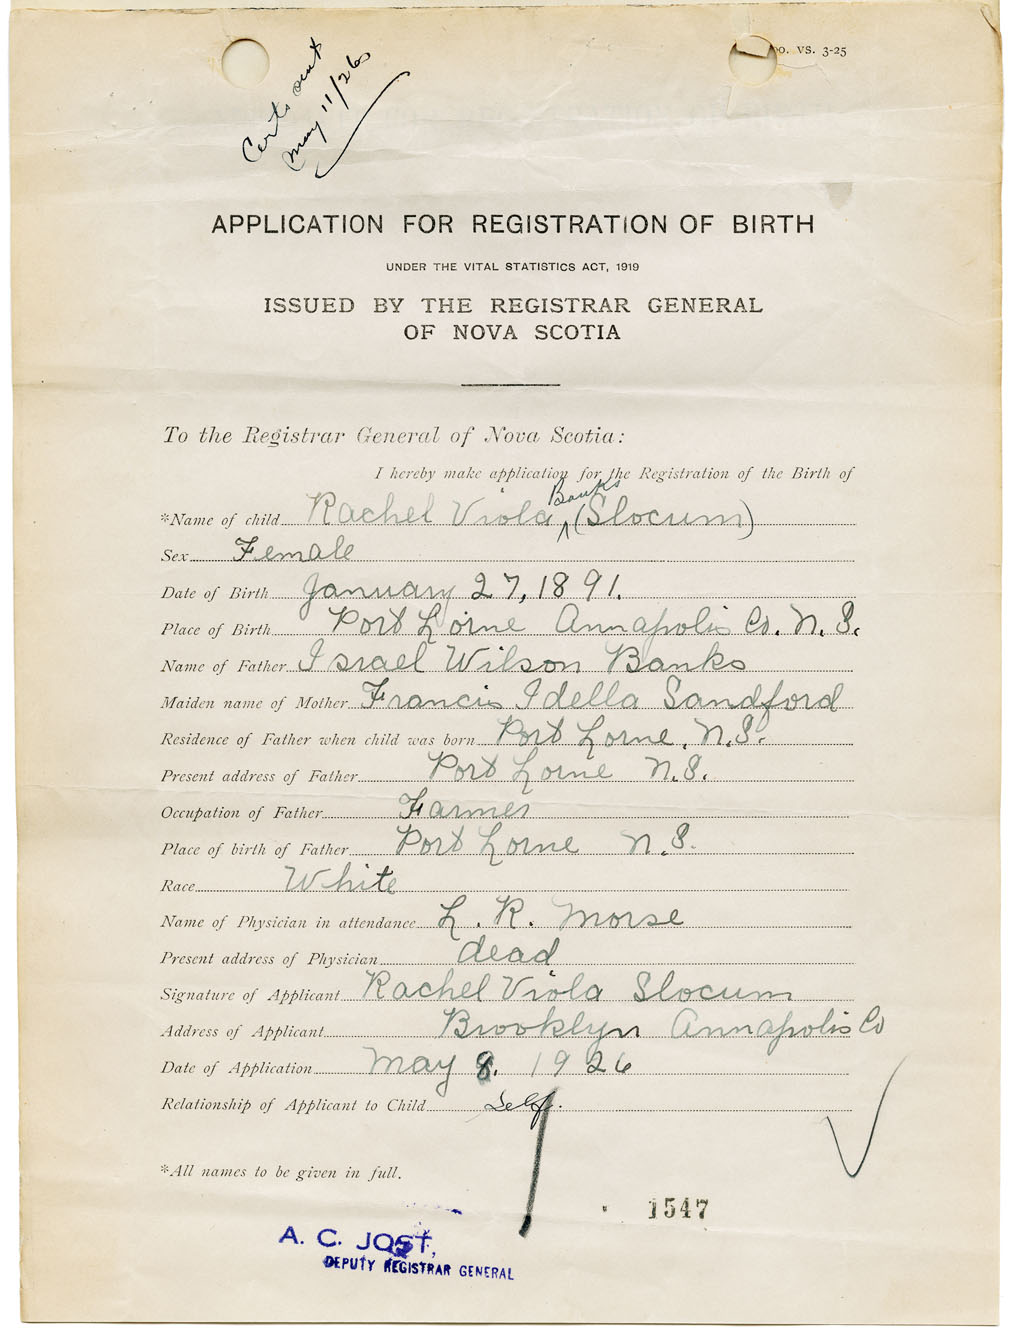 Certs sent
May 11/26
00. VS. 3-25
APPLICATION FOR REGISTRATION OF BIRTH
UNDER THE VITAL STATISTICS ACT, 1919
ISSUED BY THE REGISTRAR GENERAL
OF NOVA SCOTIA
To the Registrar General of Nova Scotia:
I hereby make application for the Registration of the Birth of
Banks
*Name of child Rachel Viola ^ (Slocum)
Sex Female
Date of Birth January 27, 1891.
Place of Birth Port Lorne Annapolis Co. N. S.
Name of Father Israel Wilson Banks
Maiden name of Mother Francis Idella Sandford
Residence of Father when child was born Port Lorne, N.S.
Present address of Father Port Lorne N.S.
Occupation of Father Farmer
Place of birth of Father Port Lorne N.S.
Race White
Name of Physician in attendance L. R. Morse
Present address of Physician dead
Signature of Applicant Rachel Viola Slocum
Address of Applicant Brooklyn Annapolis Co
Date of Application May 8. 1926
Relationship of Applicant to Child Self.
*All names to be given in full.
1547
A. C. JOST,
DEPUTY REGISTRAR GENERAL